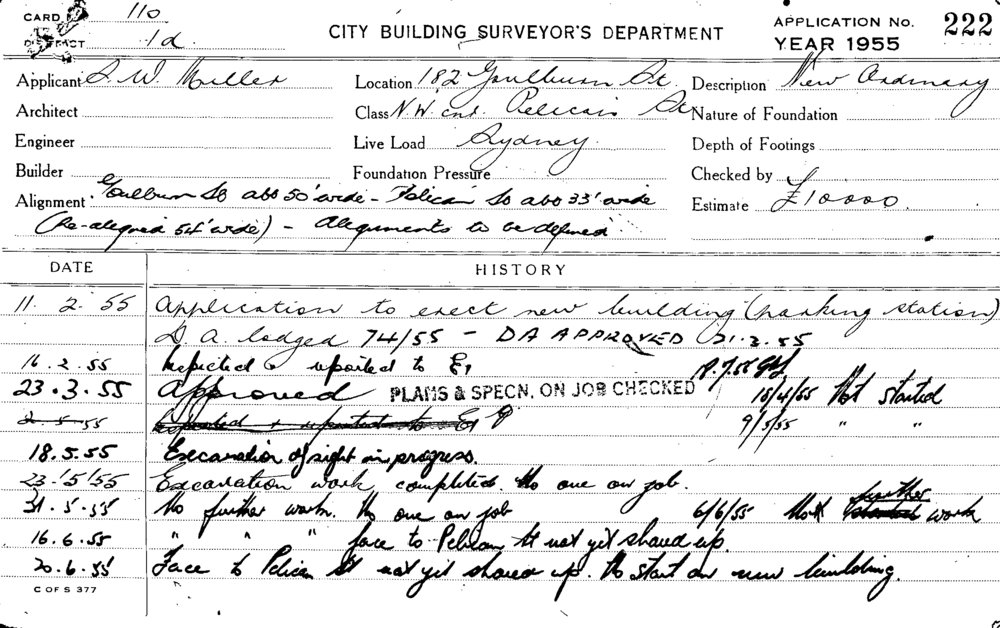 CARD 110
DISTRICT 1d.
CITY BUILDING SURVEYOR'S DEPARTMENT
APPLICATION No. 222
YEAR 1955
Applicant S. W. Miller Location 182 Goulburn St. Description New Ordinary
Architect Class N.W. cnr. Pelican St Nature of Foundation
Engineer Live Load Sydney. Depth of Footings
Builder Foundation Pressure Checked by
Alignment Goulburn St abt 50' wide - Pelican St abt 33' wide Estimate £10000.
(Re-aligned 54' wide) - Alignments to be defined.
DATE HISTORY
11. 2. 55 Application to erect new building (parking station)
D. A. lodged 74/55 - DA APPROVED 21.2.55
16.2.55 Inspected & reported to
23.3.55 Approved PLANS & SPECN. ON JOB CHECKED 18/4/55 Not started
2-5-55 Inspected & reported to 9/5/55 " "
18.5.55 Excavation of sight in progress.
23.5.55 Excavation work completed. No one on job.
31.5.55 No further work. No one on job 6/6/55 No further started work
16.6.55 " " " face to Pelican St not yet shored up.
20.6.55 Face to Pelican St not yet shored up. No start on new building.
C OF S 377